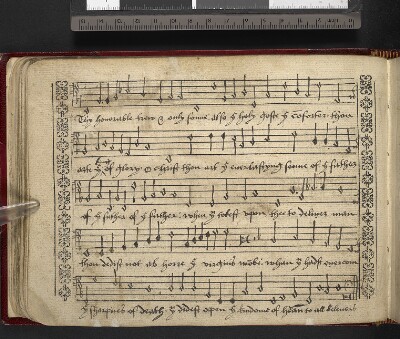 Thy honorable trew & only sonne also yͤ holy goste yͤ coforter thou
art yͤ kyng of glory o christ thou art yͤ everlastyng sonne of yͤ father
of yͤ father of yͤ father when yͧ tokest upon thee to delever man
thou dedist not ab horre yͤ virgins wobe whan yͧ hadst overcom
yͤ sharpnes of death yͧ didest open yͤ kindome of heavn to all belevers